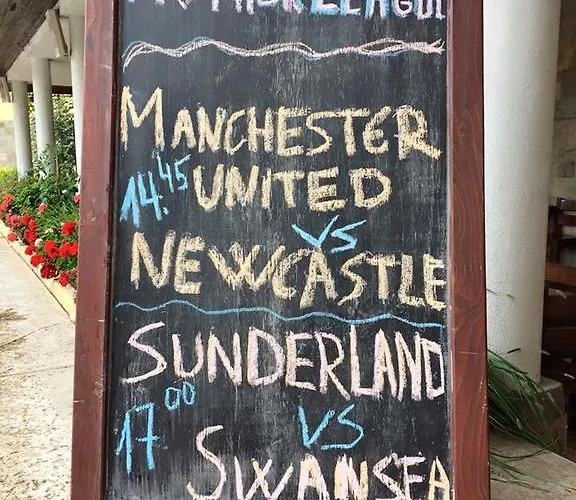 MANCHESTER
14.45 UNITED
VS
NEWCASTLE
SUNDERLAND
17.00 VS
SWANSEA